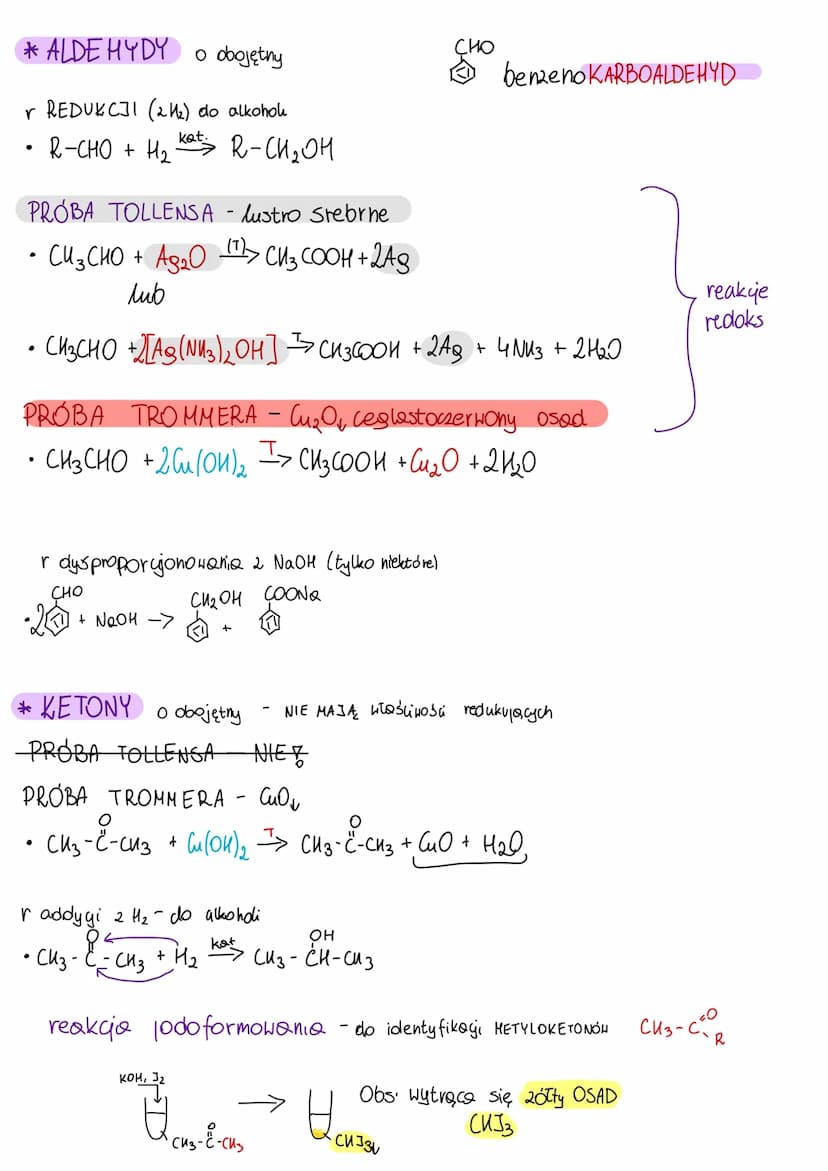 * ALDEHYDY o obojętny
CHO
benzenoKARBOALDEHYD
r REDUKCJI (z H₂) do alkoholu
• R-CHO + H₂ kat.→ R-CH₂OH
PRÓBA TOLLENSA - lustro srebrne
• CH₃CHO + Ag₂O (T)→ CH₃COOH + 2Ag
lub
• CH₃CHO + 2[Ag(NH₃)₂OH] T→ CH₃COOH + 2Ag + 4NH₃ + 2H₂O
reakcje
redoks
PRÓBA TROMMERA - Cu₂O↓ ceglastoczerwony osad
• CH₃CHO + 2Cu(OH)₂ T→ CH₃COOH + Cu₂O + 2H₂O
r dysproporcjonowania z NaOH (tylko niektóre)
CHO CH₂OH COONa
• 2 + NaOH → +
* KETONY o obojętny - NIE MAJĄ właściwości redukujących
PRÓBA TOLLENSA - NIE!
PRÓBA TROMMERA - CuO↓
O O
• CH₃-C-CH₃ + Cu(OH)₂ T→ CH₃-C-CH₃ + CuO + H₂O
r addycji z H₂ - do alkoholi
O OH
• CH₃-C-CH₃ + H₂ kat→ CH₃-CH-CH₃
reakcja jodoformowania - do identyfikacji METYLOKETONÓW CH₃-C=O R
KOH, I₂
→ Obs. wytrąca się żółty OSAD
CHI₃
CH₃-C-CH₃ CHI₃↓
O